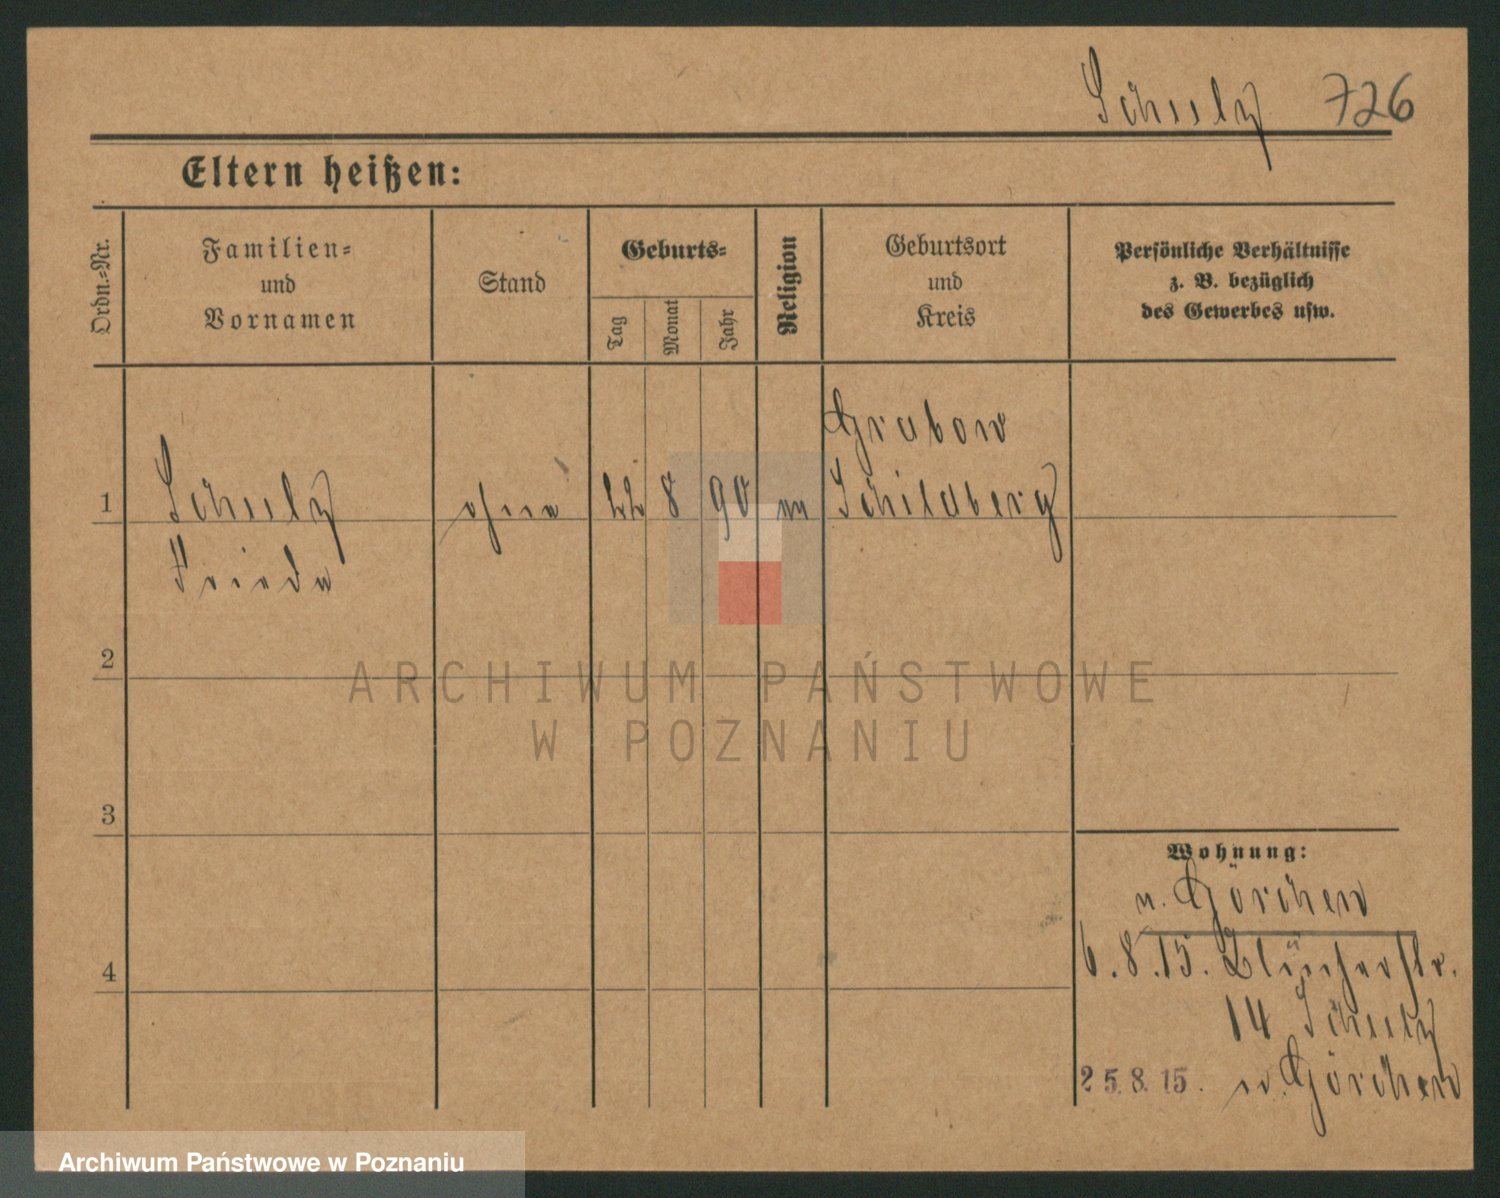 Schulz 726
Eltern heißen:
Ordn.-Nr.
Familien-
und
Vornamen
Stand
Geburts-
Tag
Monat
Jahr
Religion
Geburtsort
und
Kreis
Persönliche Verhältnisse
z. B. bezüglich
des Gewerbes usw.
Grabow
1 Schulz ohne 22 8 90 Schildberg
Frieda
2
3
4
Wohnung:
n. Görchen
6.8.15. Blücherstr.
14 Schulz
25.8.15. n. Görchen
ARCHIWUM PAŃSTWOWE
W POZNANIU
Archiwum Państwowe w Poznaniu